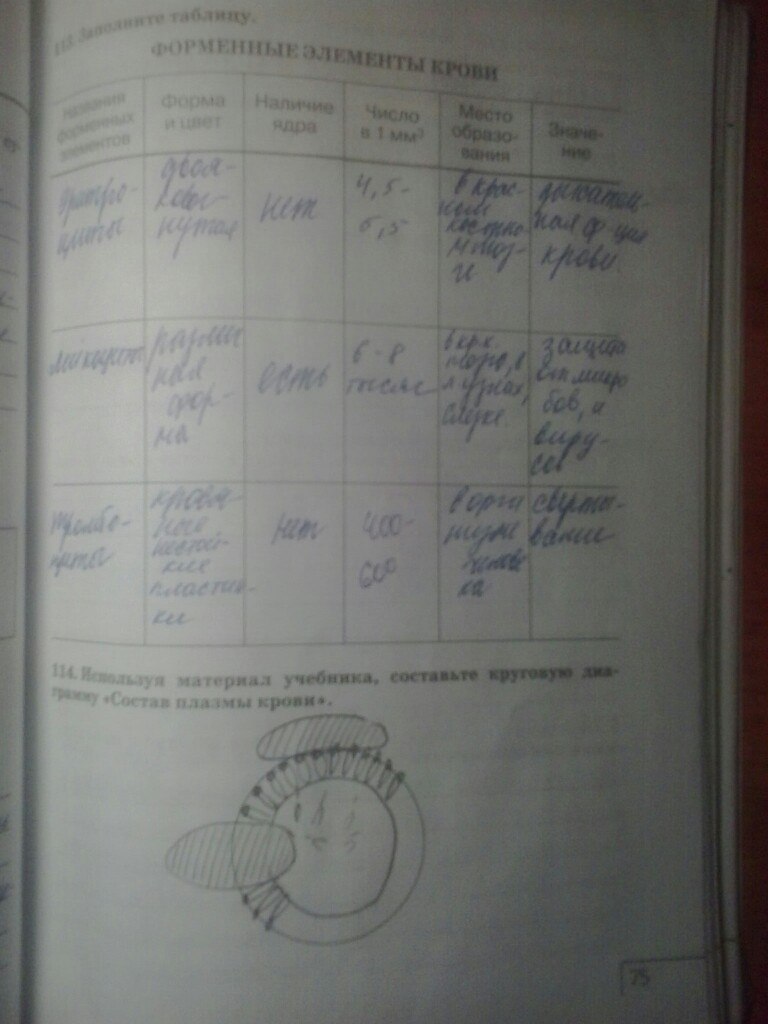 113. Заполните таблицу.
ФОРМЕННЫЕ ЭЛЕМЕНТЫ КРОВИ
Названия форменных элементов
Форма и цвет
Наличие ядра
Число в 1 мм³
Место образо-
вания
Значе-
ние
эритро-
циты
двоя-
ково-
гнутая
нет
4,5-
5,5
в крас-
ном
костно
м моз-
ге
дыхатель-
ная ф-ция
крови.
лейкоциты
разли
ная
фор-
ма
есть
6-8
тысяс
узлах,
защита
от микро
бов, и
виру-
сов
тромбо-
циты
кровя-
ного
пластин-
ки
нет
400-
600
в орга
низме
челове
ка
сверты-
вание
114. Используя материал учебника, составьте круговую диа-
грамму «Состав плазмы крови».
75